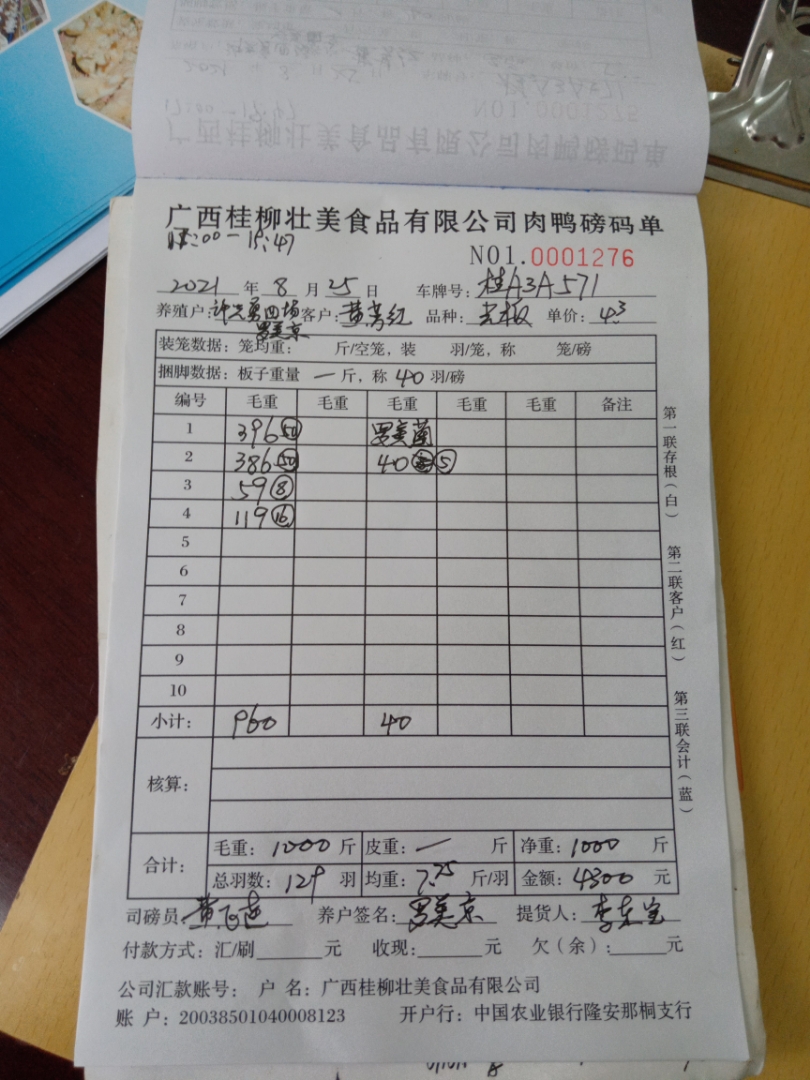 广西桂柳壮美食品有限公司肉鸭磅码单
NO1.0001276
2021 年 8 月 25 日 车牌号: 桂A3A571
养殖户: 四场 客户: 品种: 单价: 4.3
罗美京
装笼数据: 笼均重: 斤/空笼, 装 羽/笼, 称 笼/磅
捆脚数据: 板子重量 一 斤, 称 40 羽/磅
编号 毛重 毛重 毛重 毛重 毛重 备注
1 396 50 罗美
2 386 50 40 5
3 59 8
4 119 16
5
6
7
8
9
10
小计: 960 40
核算:
合计: 毛重: 1000 斤 皮重: 一 斤 净重: 1000 斤
总羽数: 129 羽 均重: 7.75 斤/羽 金额: 4300 元
司磅员: 养户签名: 罗美京 提货人: 李东宝
付款方式: 汇/刷 元 收现: 元 欠(余): 元
公司汇款账号: 户 名: 广西桂柳壮美食品有限公司
账 户: 20038501040008123 开户行: 中国农业银行隆安那桐支行
第一联存根(白)
第二联客户(红)
第三联会计(蓝)